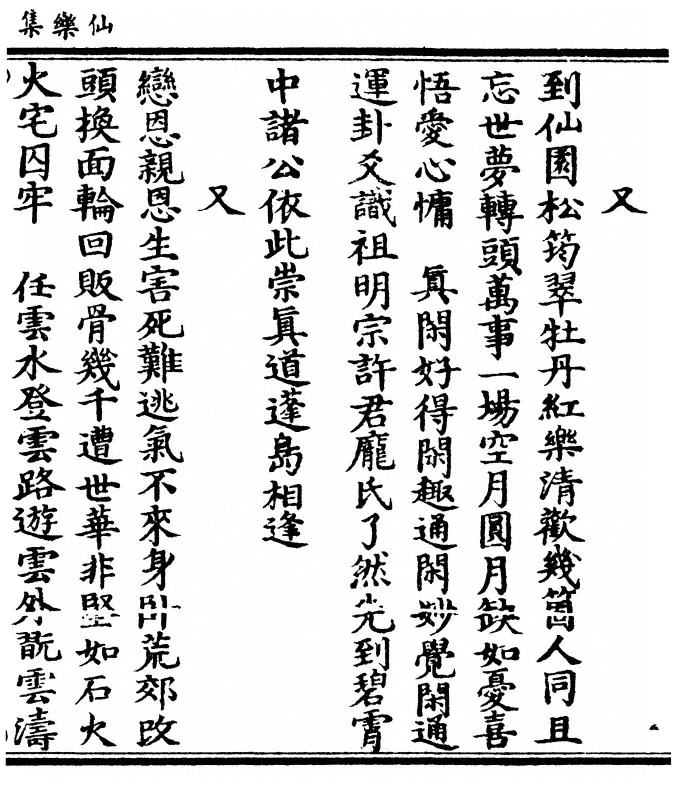 仙樂集
又
到仙園松筠翠牡丹紅樂清歡幾箇人同且
忘世夢轉頭萬事一場空月圓月缺如憂喜
悟愛心慵　眞閑好得閑趣通閑妙覺閑通
運卦爻識祖明宗許君龐氏了然先到碧霄
中諸公依此崇眞道蓬島相逢
又
戀恩親恩生害死難逃氣不來身卧荒郊改
頭換面輪回販骨幾千遭世華非堅如石火
火宅囚牢　任雲水登雲路遊雲外翫雲濤